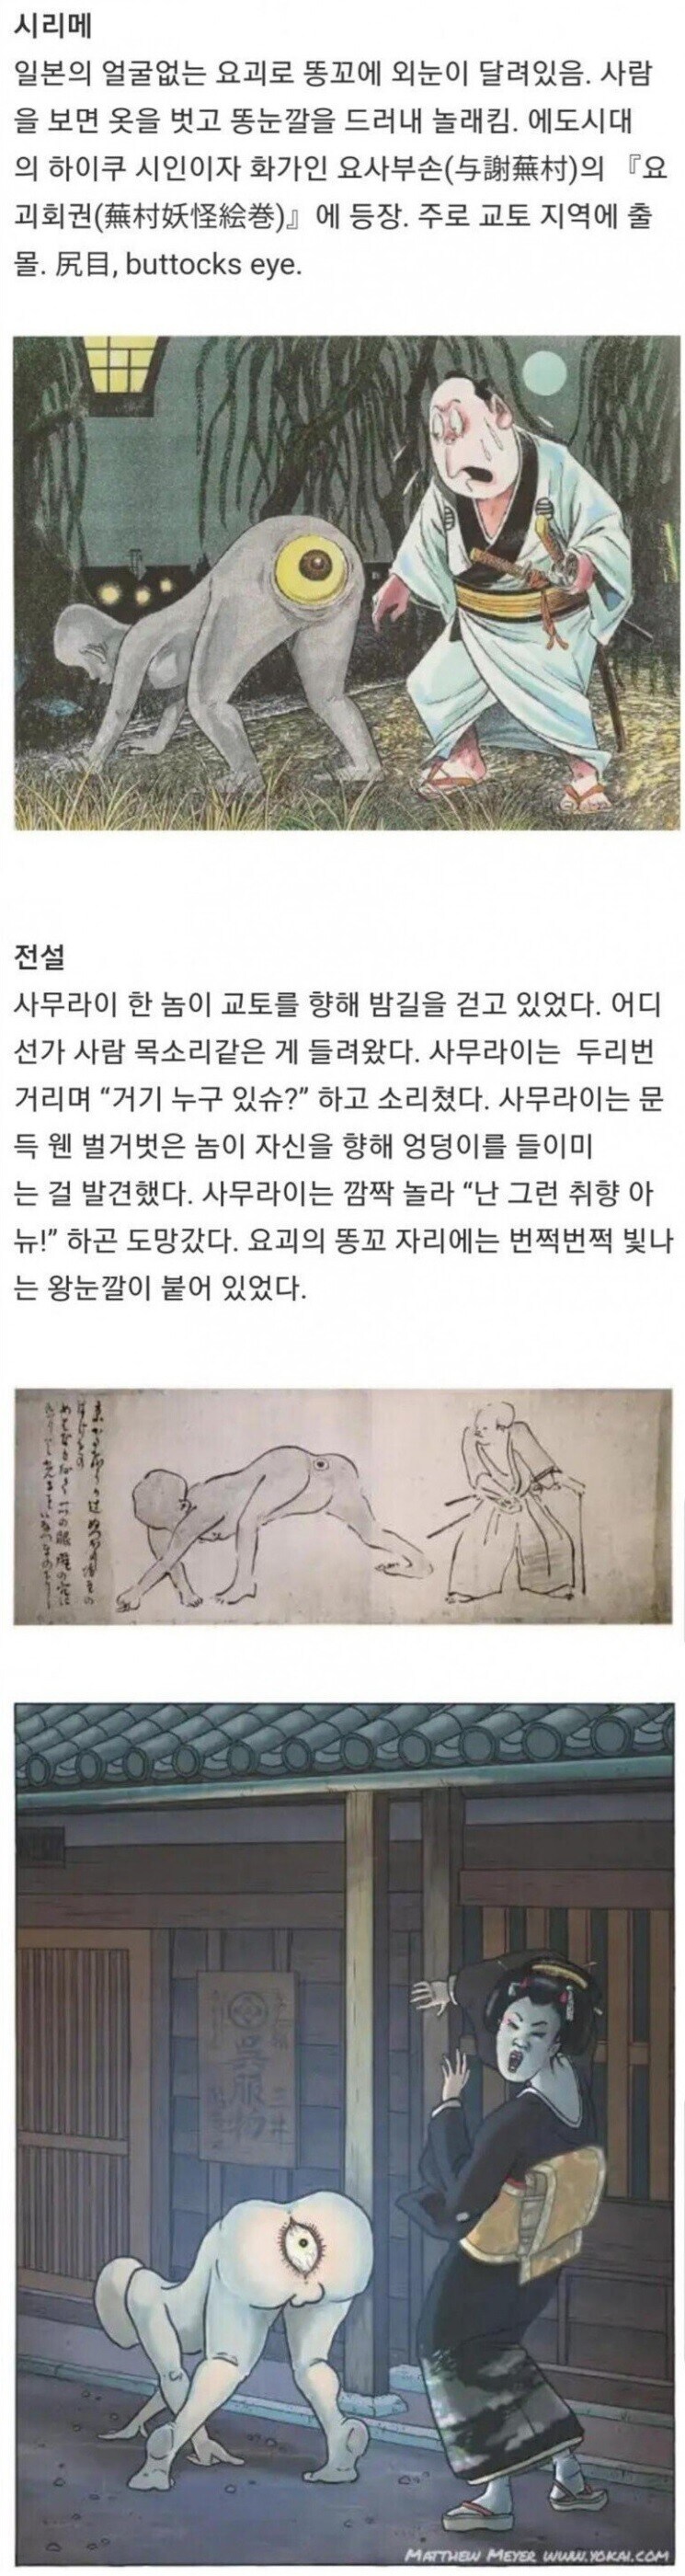 시리메
일본의 얼굴없는 요괴로 똥꼬에 외눈이 달려있음. 사람
을 보면 옷을 벗고 똥눈깔을 드러내 놀래킴. 에도시대
의 하이쿠 시인이자 화가인 요사부손(与謝蕪村)의 『요
괴회권(蕪村妖怪絵巻)』에 등장. 주로 교토 지역에 출
몰. 尻目, buttocks eye.
전설
사무라이 한 놈이 교토를 향해 밤길을 걷고 있었다. 어디
선가 사람 목소리같은 게 들려왔다. 사무라이는 두리번
거리며 “거기 누구 있슈?” 하고 소리쳤다. 사무라이는 문
득 웬 벌거벗은 놈이 자신을 향해 엉덩이를 들이미
는 걸 발견했다. 사무라이는 깜짝 놀라 “난 그런 취향 아
뉴!” 하곤 도망갔다. 요괴의 똥꼬 자리에는 번쩍번쩍 빛나
는 왕눈깔이 붙어 있었다.
呉服物
三井
MATTHEW MEYER WWW.YOKAI.COM